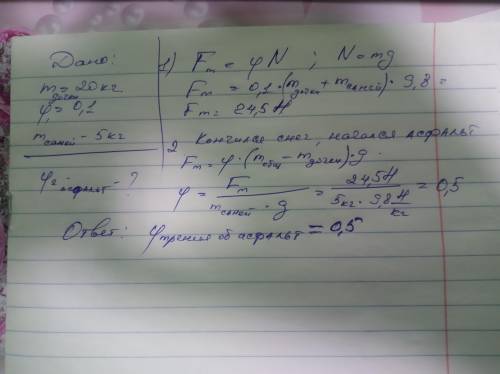 Дано:
m дочки = 20 кг
φ₁ = 0,1
m саней - 5 кг
φ₂ асфальт - ?
1) Fт = φN ; N = mg
Fт = 0,1 · (m дочки + m саней) · 9,8 =
Fт = 24,5 Н
2 Кончился снег, начался асфальт
Fт = φ · (m общ - m дочки) · g.
φ = Fт / m саней · g = 24,5 Н / 5 кг · 9,8 Н/кг = 0,5
Ответ: φ трения об асфальт = 0,5